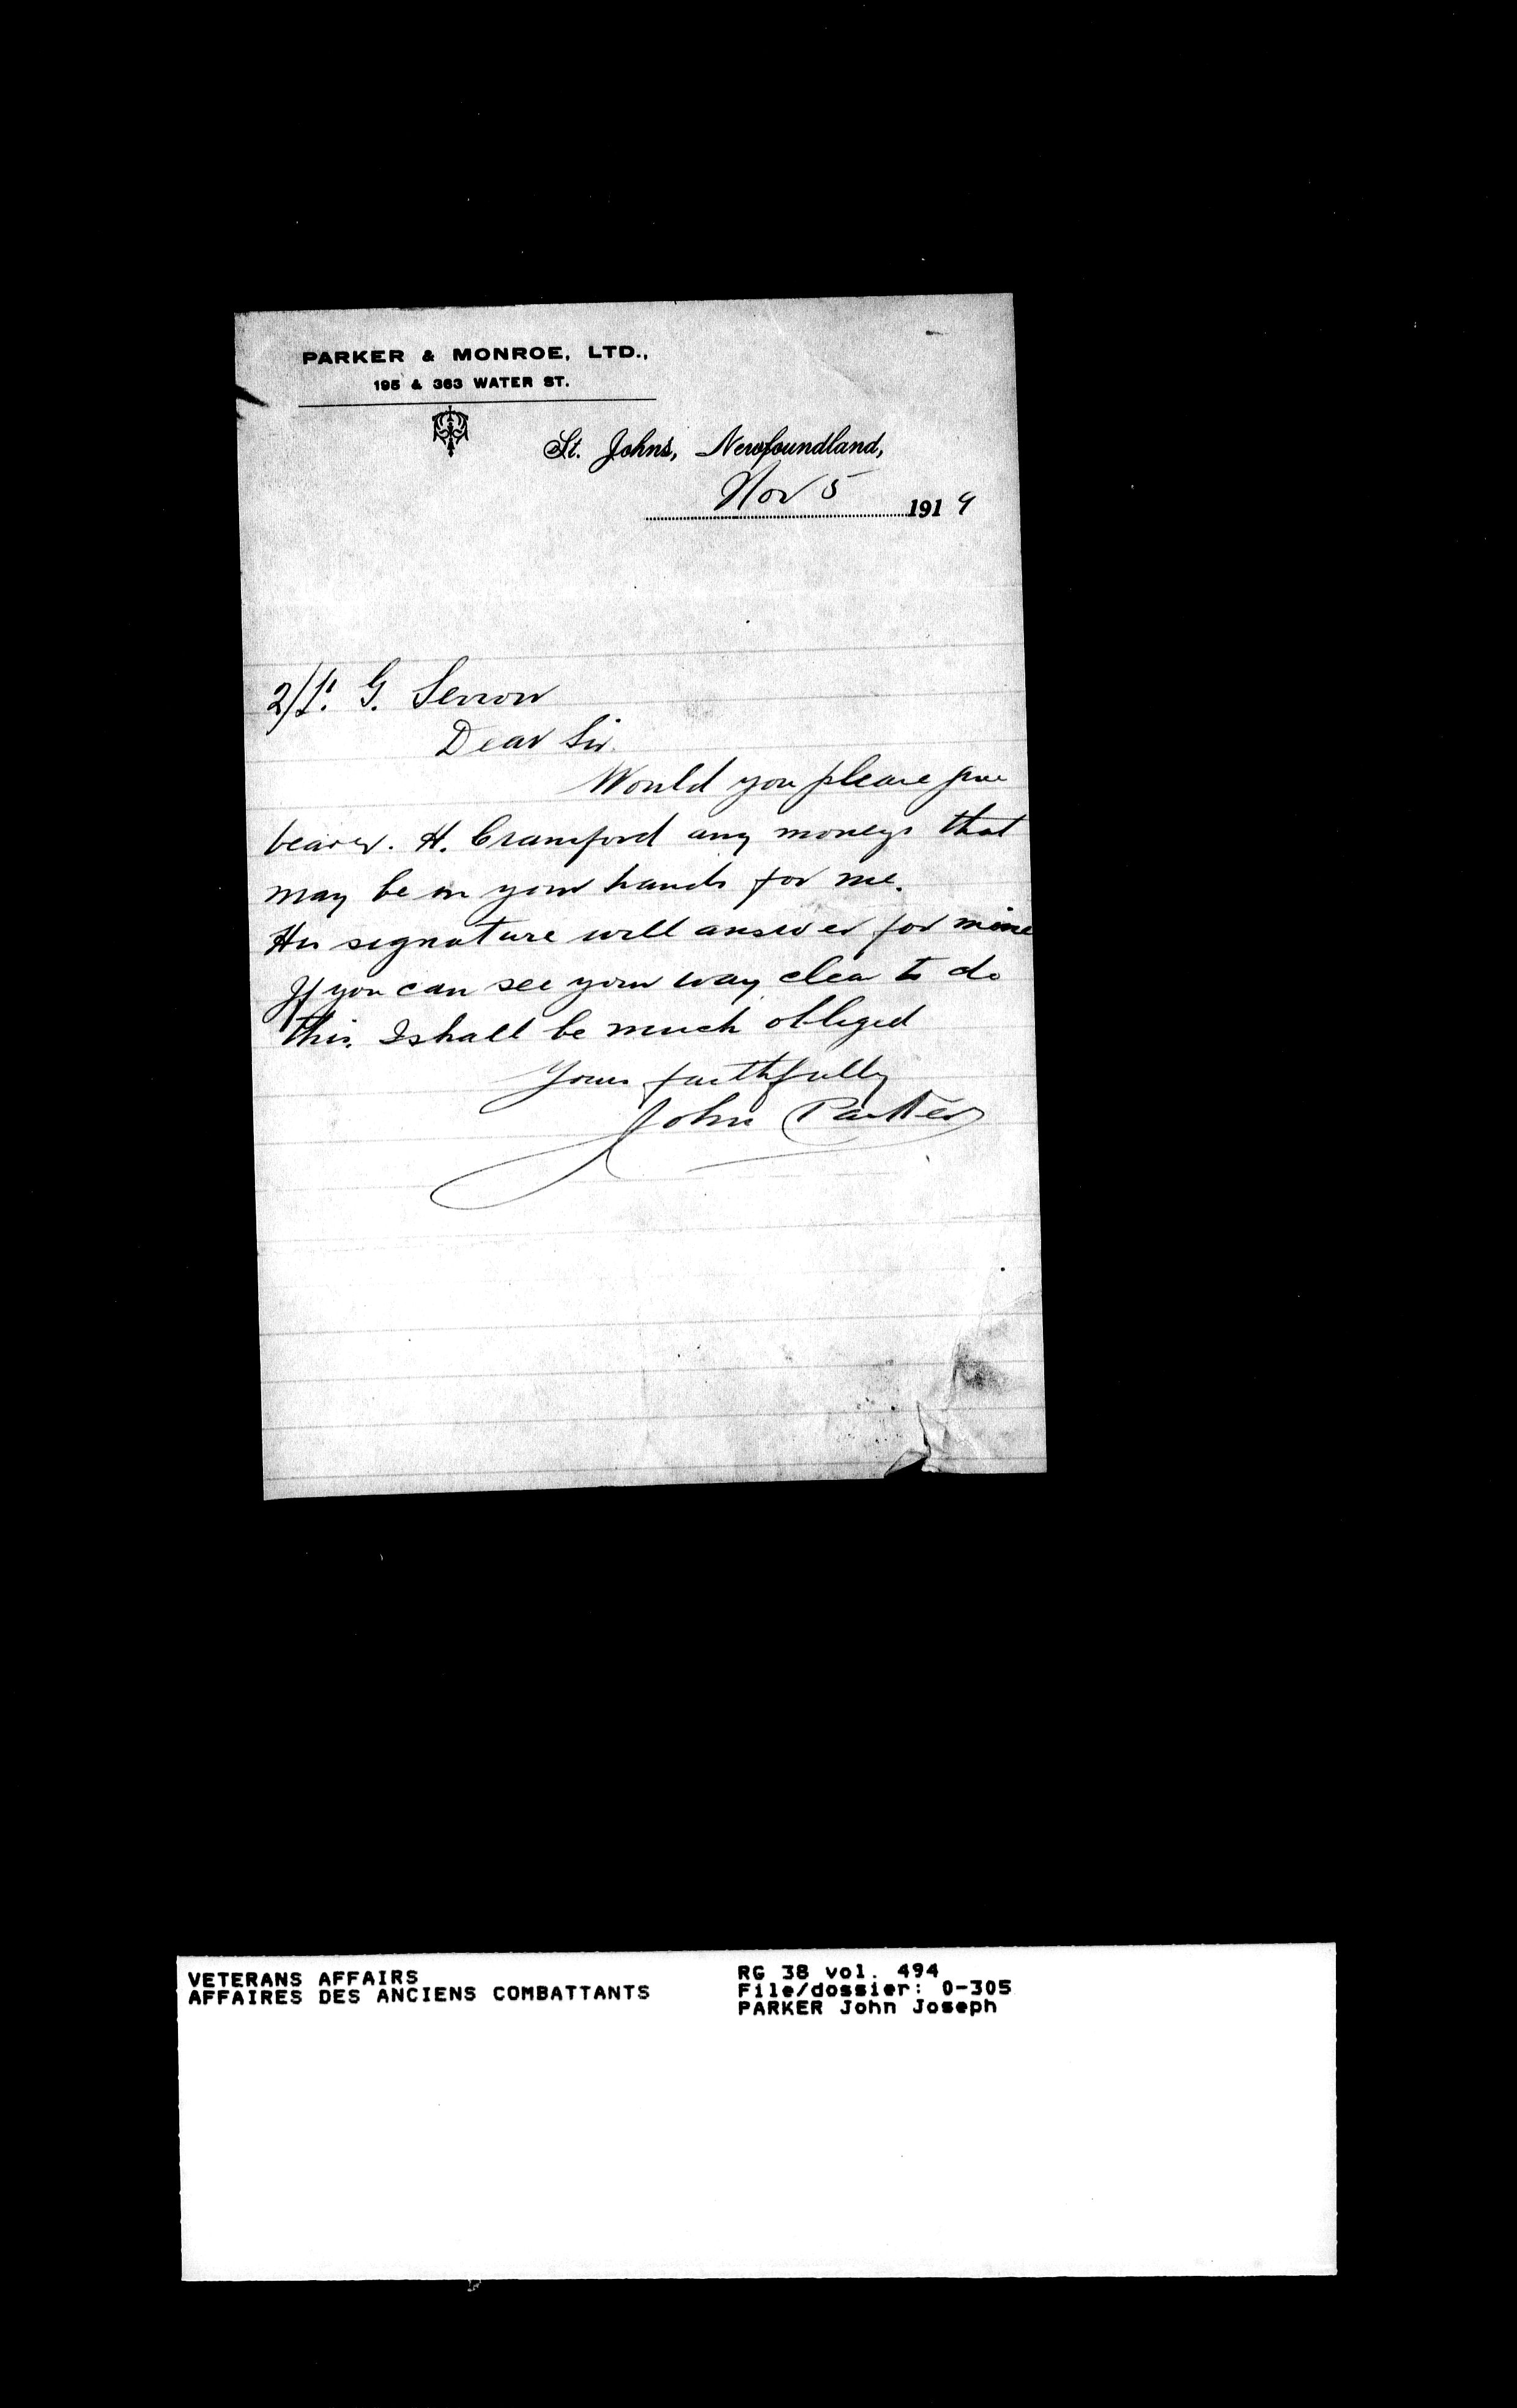 PARKER & MONROE, LTD.,
195 & 363 WATER ST.
St. Johns, Newfoundland,
Nov 5 1919
2/Lt. G.
Dear Sir.
Would you please give
bearer. H. Cramford any moneys that
may be in your hands for me.
His signature will answer for mine
If you can see your way clear to do
this. I shall be much obliged
Yours faithfully
John Parker
VETERANS AFFAIRS
AFFAIRES DES ANCIENS COMBATTANTS
RG 38 vol. 494
File/dossier: 0-305
PARKER John Joseph